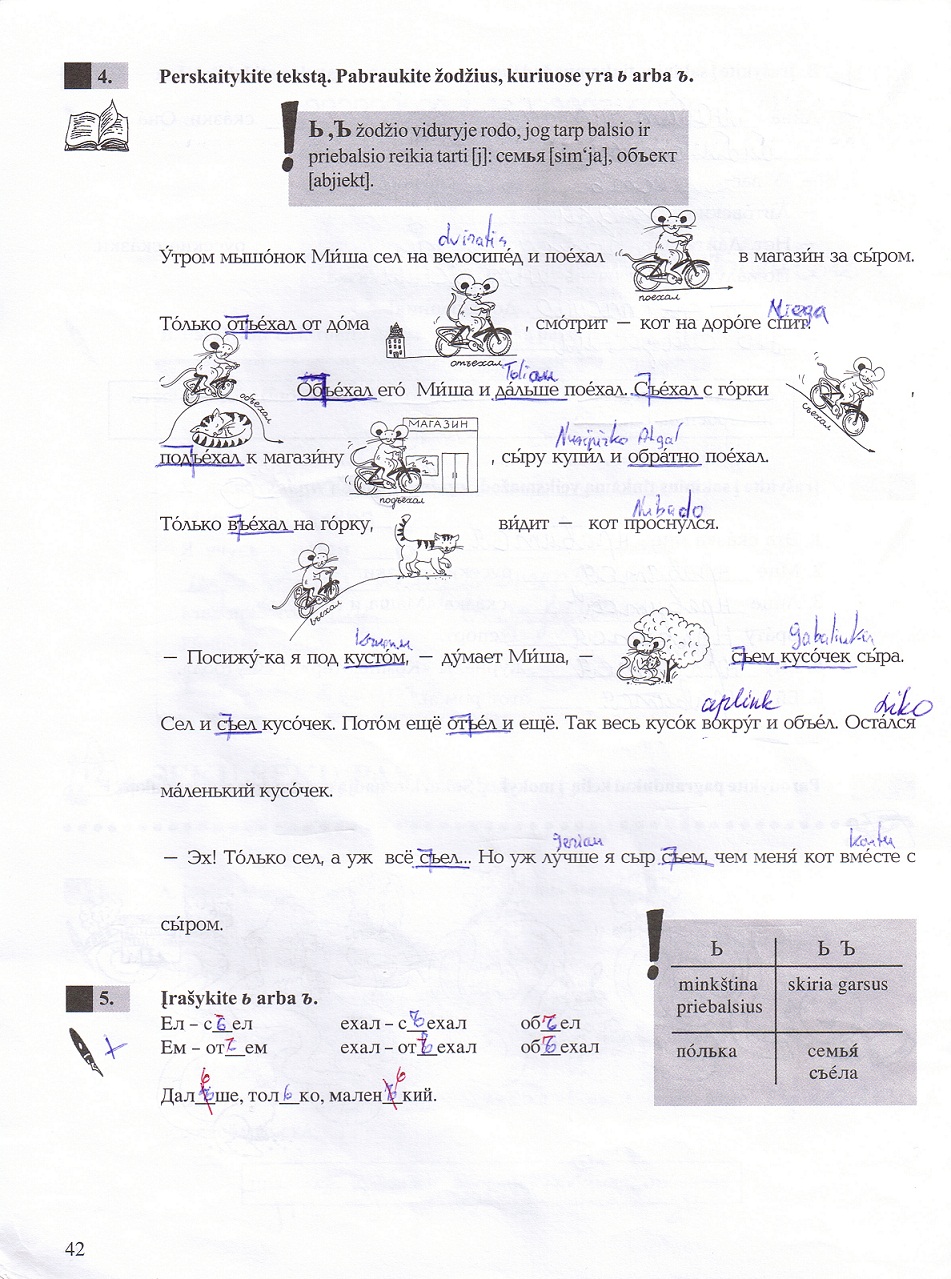 4. Perskaitykite tekstą. Pabraukite žodžius, kuriuose yra ь arba ъ.
Ь ,Ъ žodžio viduryje rodo, jog tarp balsio ir
priebalsio reikia tarti [j]: семья [sim‘ja], объект
[abjiekt].
dviratis
У́тром мышо́нок Ми́ша сел на велосипе́д и пое́хал в магази́н за сы́ром.
поехал
Miega
То́лько отъе́хал от до́ма , смо́трит — кот на доро́ге спит!
отъехал
объехал
Toliau
Объе́хал его́ Ми́ша и да́льше пое́хал. Съе́хал с го́рки ,
съехал
МАГАЗИН
подъе́хал к магази́ну , сы́ру купи́л и обра́тно пое́хал.
подъехал
Nubudo
То́лько въе́хал на го́рку, ви́дит — кот просну́лся.
въехал
gabaliuką
— Посижу́-ка я под кусто́м, — ду́мает Ми́ша, — съем кусо́чек сы́ра.
aplink liko
Сел и съел кусо́чек. Пото́м ещё отъе́л и ещё. Так весь кусо́к вокру́г и объе́л. Оста́лся
ма́ленький кусо́чек.
geriau kartu
— Эх! То́лько сел, а уж всё съел... Но уж лу́чше я сыр съем, чем меня́ кот вме́сте с
сы́ром.
Ь Ь Ъ
minkština skiria garsus
priebalsius
по́лька семья́
съе́ла
5. Įrašykite ь arba ъ.
Ел – съел ехал – съехал объел
Ем – отъем ехал – отъехал объехал
Дальше, только, маленький.
42